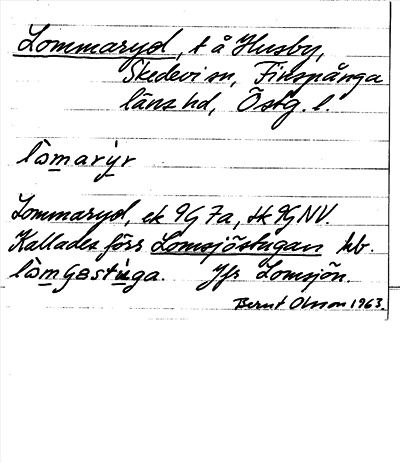 Lommaryd, t å Husby,
Skedevi sn, Finspånga
läns hd, Östg. l.
lòmarỳr
Lommaryd, ek 9G 7a, tk 9G NV.
Kallades förr Lomsjöstugan hb.
lòmʃɵstùga. Jfr Lomsjön.
Bernt Olsson 1963.